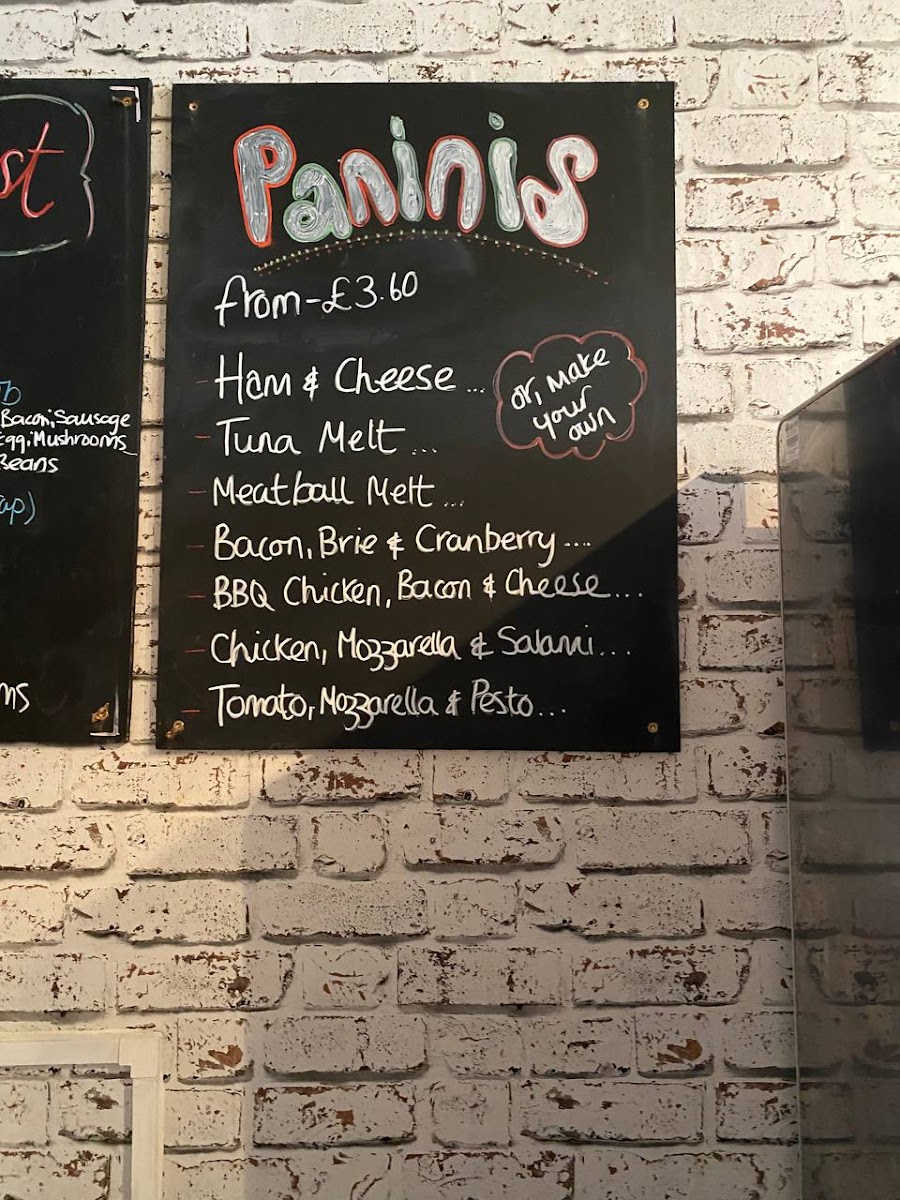 st
Bacon, Sausage
Egg, Mushrooms
Beans
Paninis
from-£3.60
- Ham & Cheese ...
- Tuna Melt ...
- Meatball Melt ...
- Bacon, Brie & Cranberry ....
- BBQ Chicken, Bacon & Cheese...
- Chicken, Mozzarella & Salami...
- Tomato, Mozzarella & Pesto...
or, make
your
own